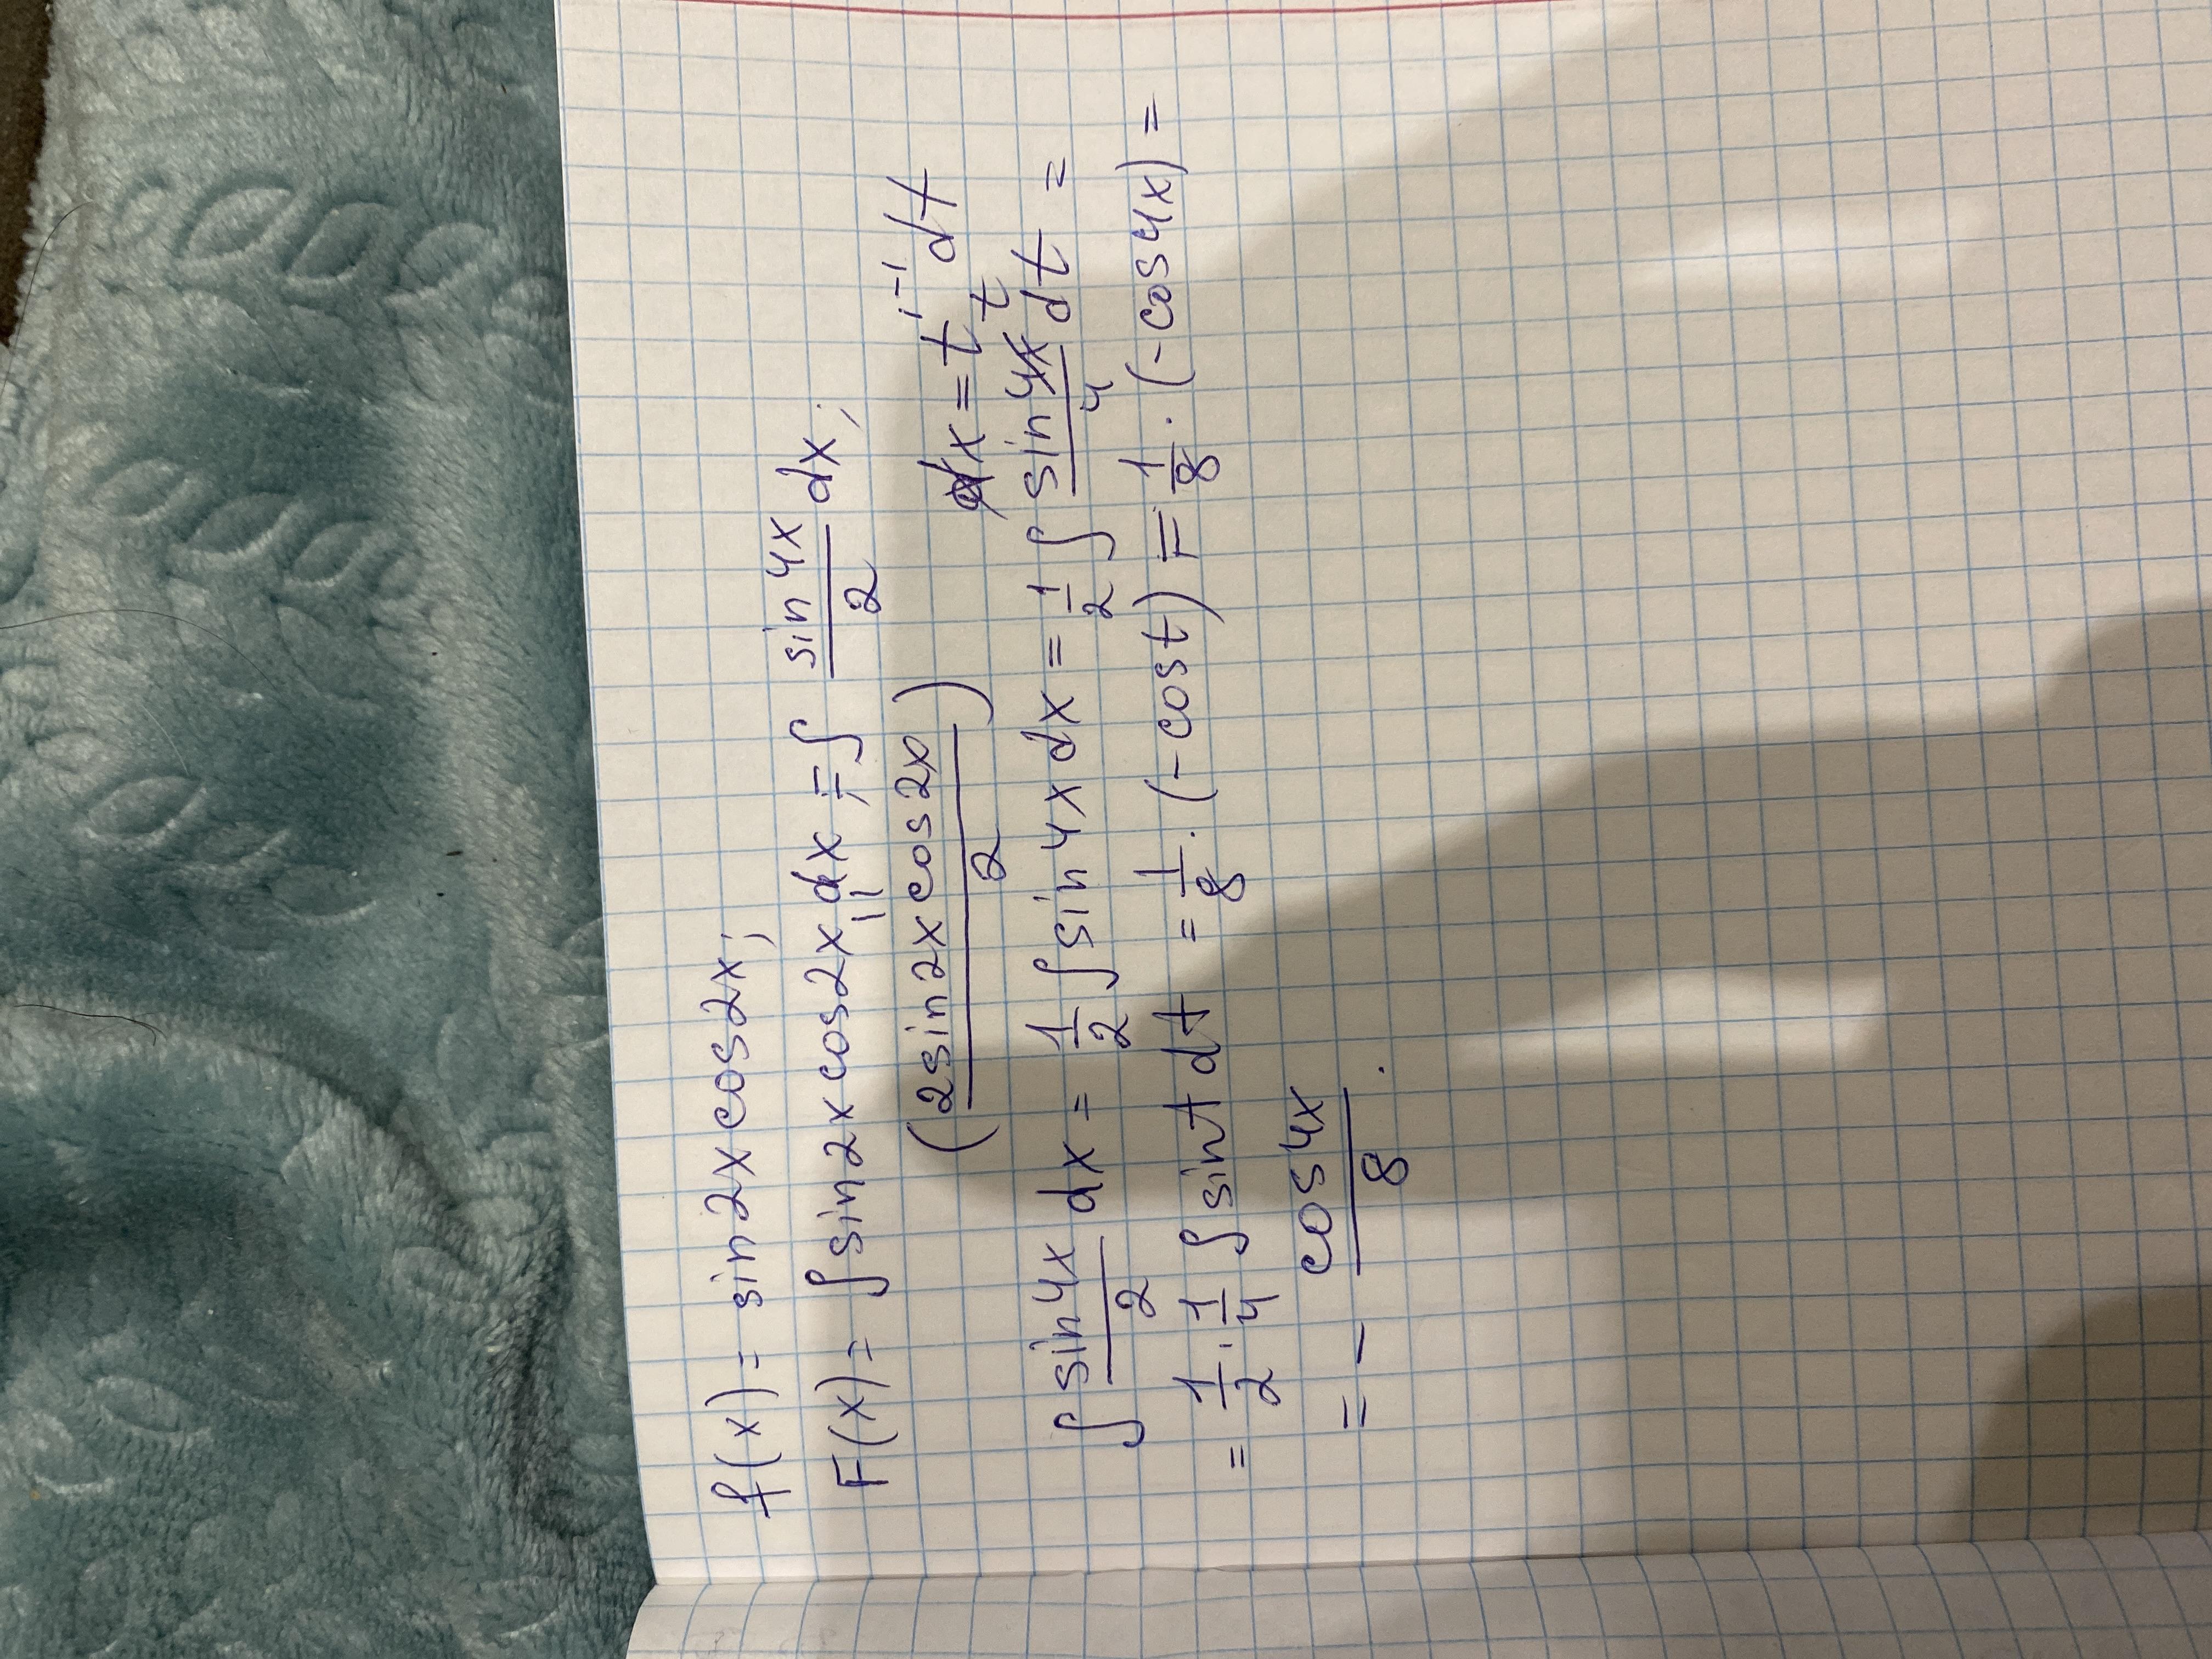 f(x) = sin2xcos2x;
F(x) = ∫ sin2xcos2x dx = ∫ sin4x/2 dx;
(2sin2xcos2x/2)
x = t^(1-1) dt
∫ sin4x/2 dx = 1/2 ∫ sin4x dx = 1/2 ∫ sin t/4 dt =
= 1/2 · 1/4 ∫ sint dt = 1/8 · (-cost) = 1/8 · (-cos4x) =
= - cos4x/8 .